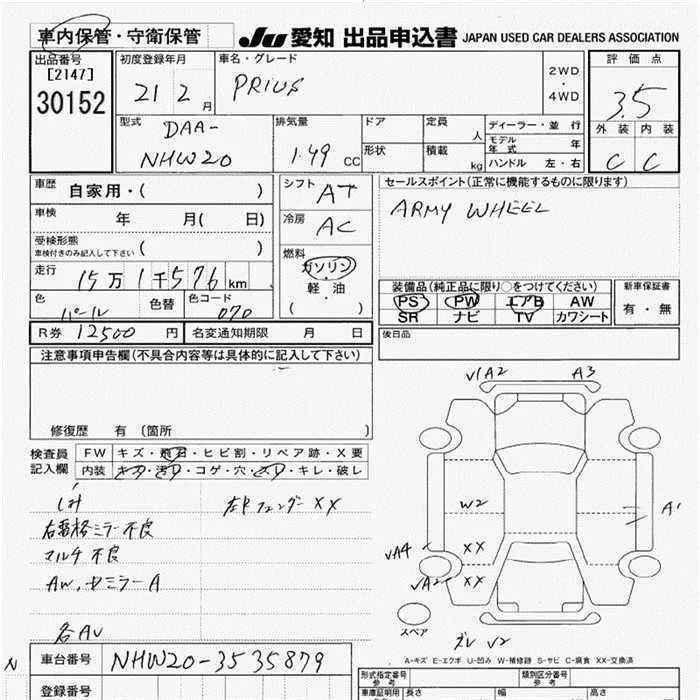 車内保管・守衛保管
JU 愛知 出品申込書 JAPAN USED CAR DEALERS ASSOCIATION
出品番号
[2147]
30152
初度登録年月
21 2 月
車名・グレード
PRIUS
2WD
・
4WD
評価点
3.5
外装 内装
C C
型式
DAA-
NHW20
排気量
1.49 CC
ドア
形状
定員 人
積載 kg
ディーラー・並行
モデル年式 年
ハンドル 左・右
車歴 自家用・( )
車検 年 月( 日)
受検形態
車検付きのみ記入して下さい ( )
走行 15万1千576km
色 パール
色替
色コード 070
シフト AT
冷房 AC
燃料
ガソリン
・
軽油
( )
セールスポイント(正常に機能するものに限ります)
ARMY WHEEL
装備品(純正品に限り○をつけてください)
PS PW エアB AW
SR ナビ TV カワシート
新車保証書
有・無
R券 12500 円
名変通知期限 月 日
後日品
注意事項申告欄(不具合内容等は具体的に記入して下さい)
修復歴 有 (箇所
検査員記入欄
FW キズ・飛石・ヒビ割・リペア跡・X要
内装 キズ・汚れ・コゲ・穴・スレ・キレ・破レ
しみ
右ミラー不良
マルチ不良
AW、ミラーA
各AU
左Fフェンダー XX
√1A2
A3
W2
A1
√A4
XX
√A2
XX
スペア
√2
A-キズ E-エクボ U-凹み W-補修跡 S-サビ C-腐食 XX-交換済
N
車台番号 NHW20-3535879
登録番号
形式指定番号
参考
類別区分番号
参考
車庫証明用
長さ
幅
高さ